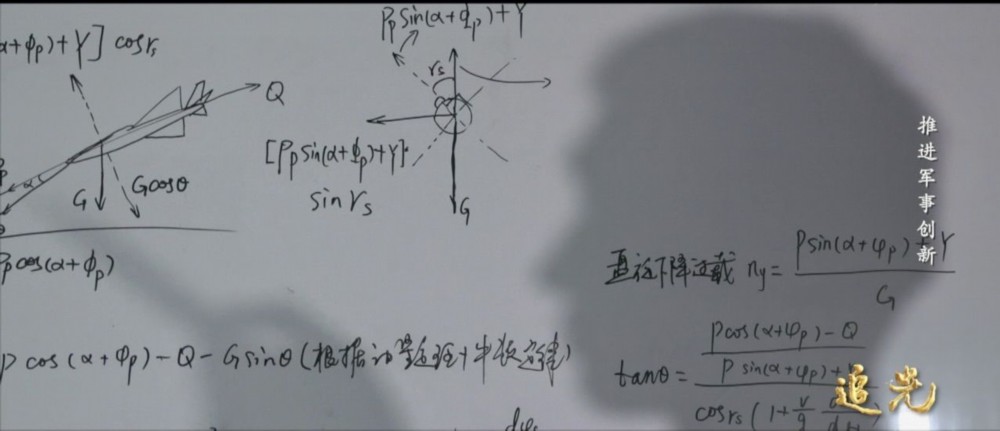 α+φp)+Y] cosγs
Q
G
Gcosθ
Pp cos(α+φp)
Pp sin(α+φp)+Y
γs
[Pp sin(α+φp)+Y]·
sinγs
G
推进军事创新
下降过载 ny = Psin(α+φp)+Y
G
P cos(α+φp)-Q-Gsinθ (根据动量定理+牛顿定律)
tanθ = Pcos(α+φp)-Q
P sin(α+φp)+
cosγs (1+ v/g
追光